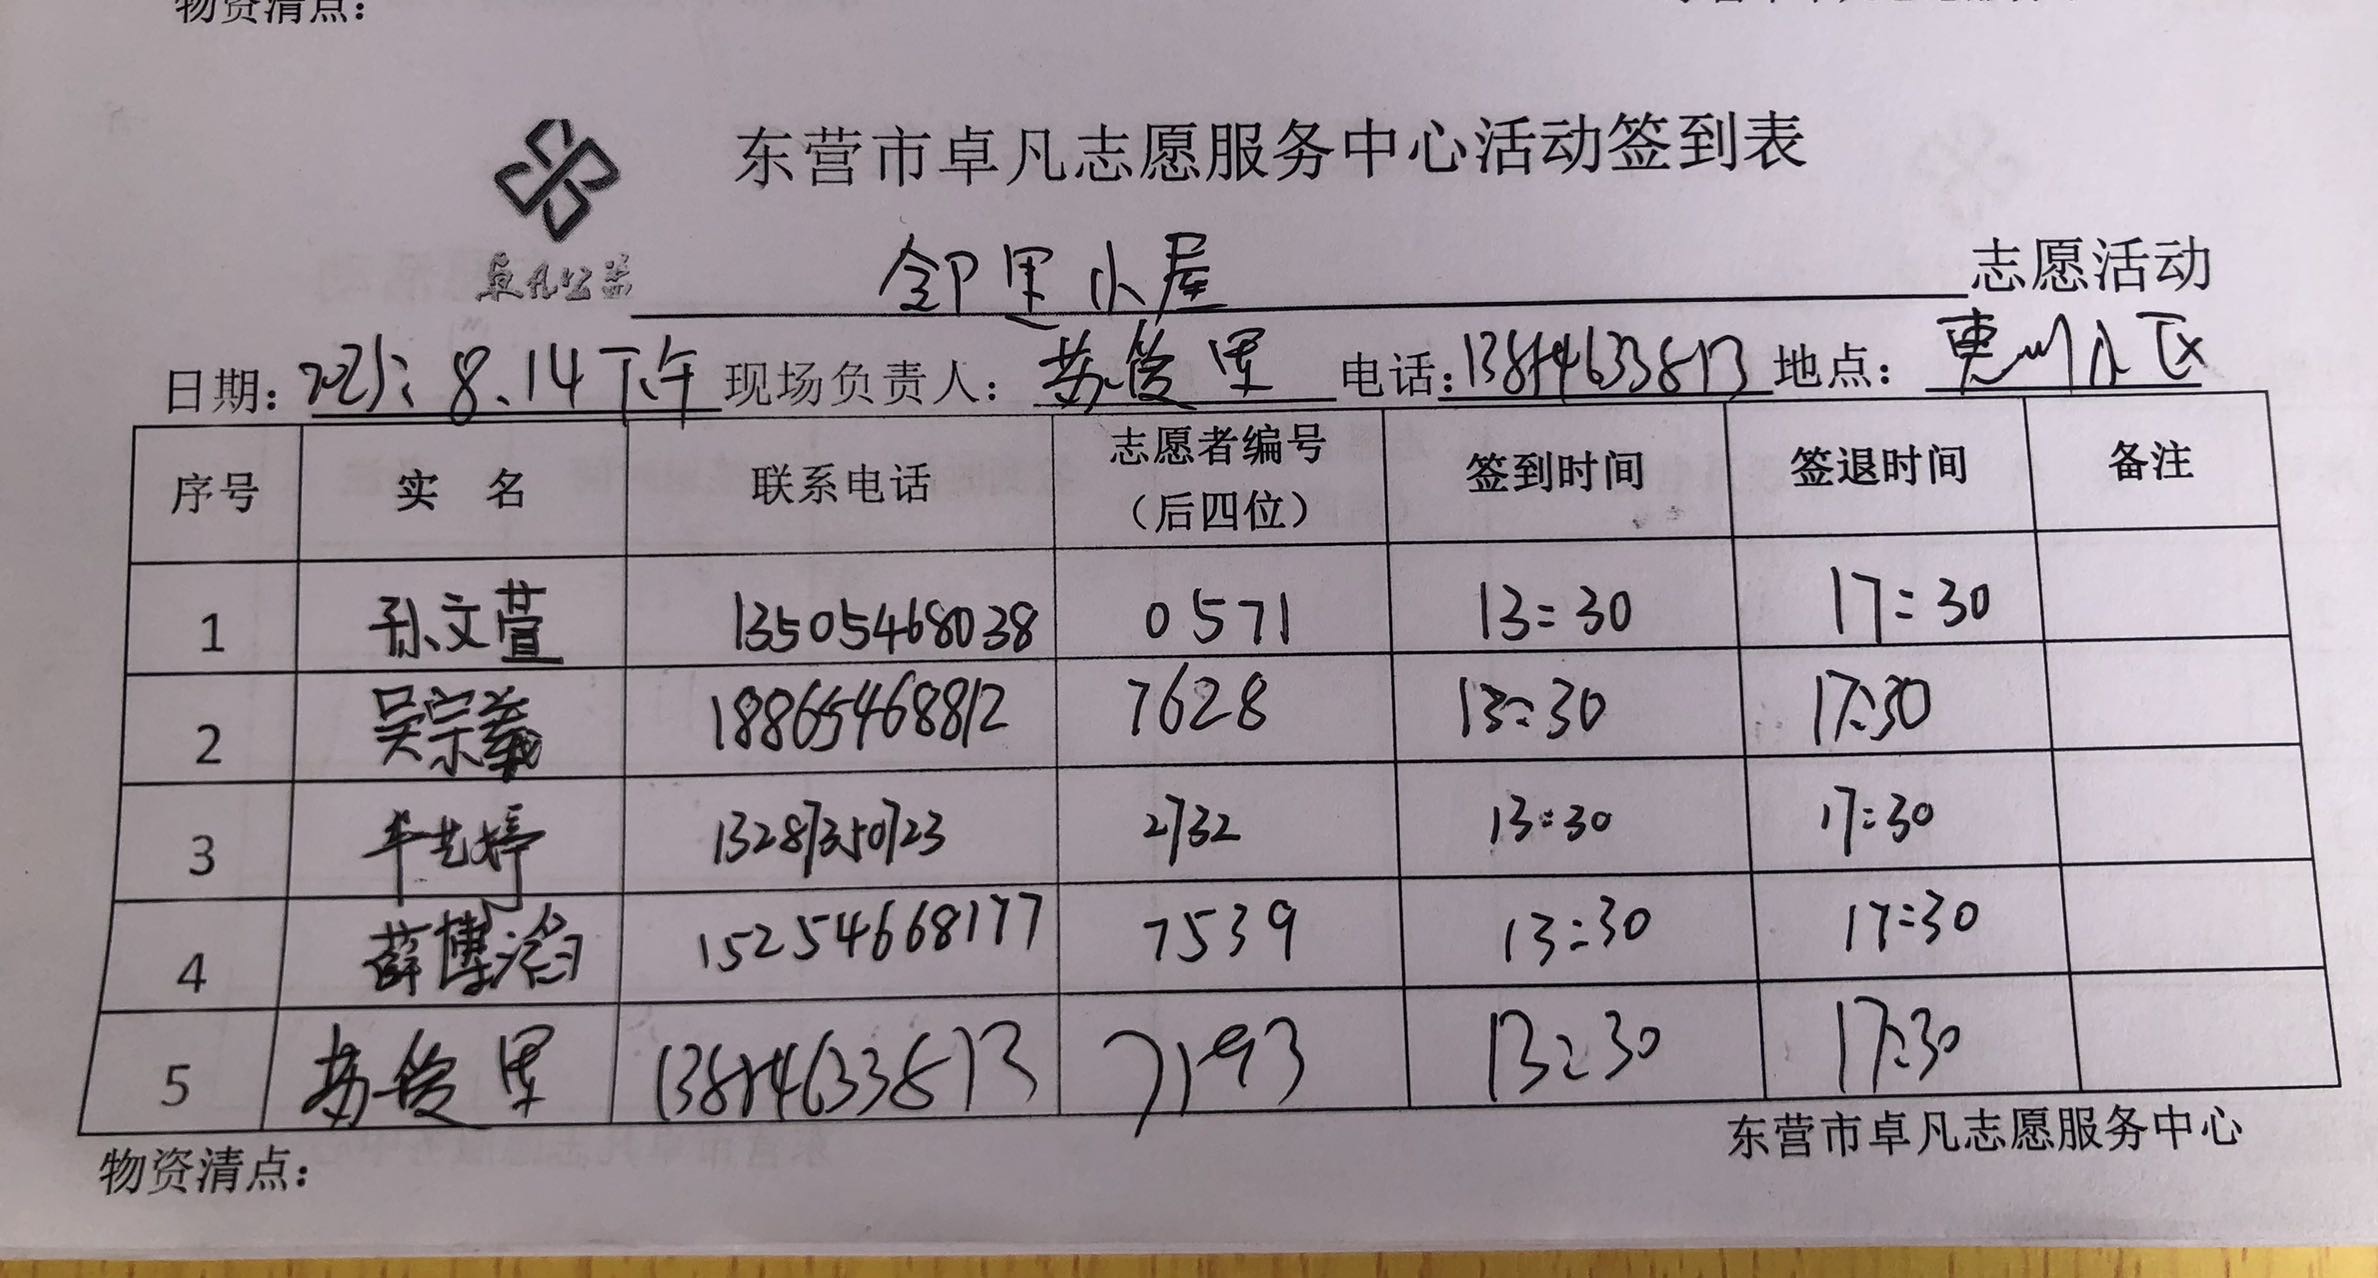 物资清点：
东营市卓凡志愿服务中心活动签到表
卓凡公益
邻里小屋 志愿活动
日期： 8.14下午 现场负责人：苏俊军 电话： 地点：
序号 实 名 联系电话 志愿者编号（后四位） 签到时间 签退时间 备注
1 孙文萱 13505468038 0571 13:30 17:30
2 吴宗羲 18865468812 7628 13:30 17:30
3 13287350123 2732 13:30 17:30
4 薛博滔 15254668177 7539 13:30 17:30
5 苏俊军 7193 13:30 17:30
东营市卓凡志愿服务中心
物资清点：